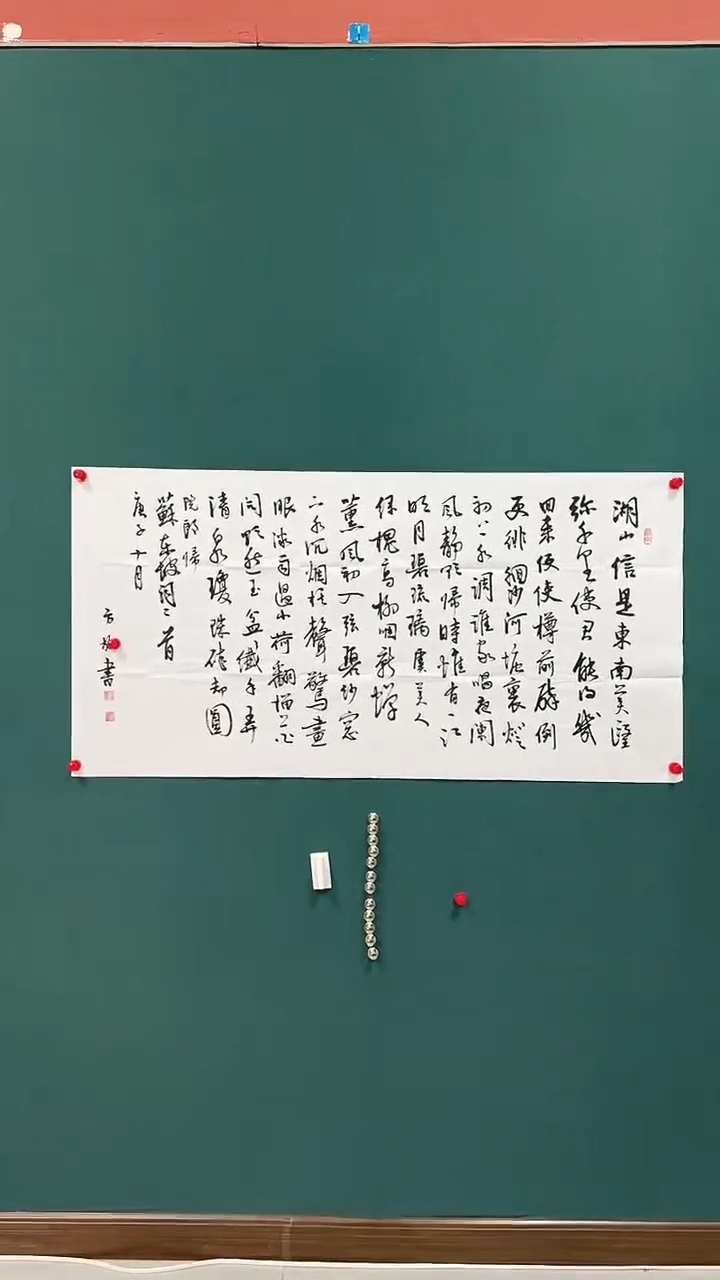 湖山信是東南美一望
弥千里使君能得幾
回来便使樽前醉倒
更徘徊沙河塘裏燈
初上水調誰家唱夜闌
風靜欲歸時惟有一江
明月碧琉璃虞美人
綠槐高柳咽新蟬
薰風初入弦碧紗窓
下水沉烟棋聲驚晝
眠微雨過小荷翻榴花
開欲然玉盆纖手弄
清泉瓊珠碎却圓
阮郎歸
蘇东坡詞二首
庚子十月
書